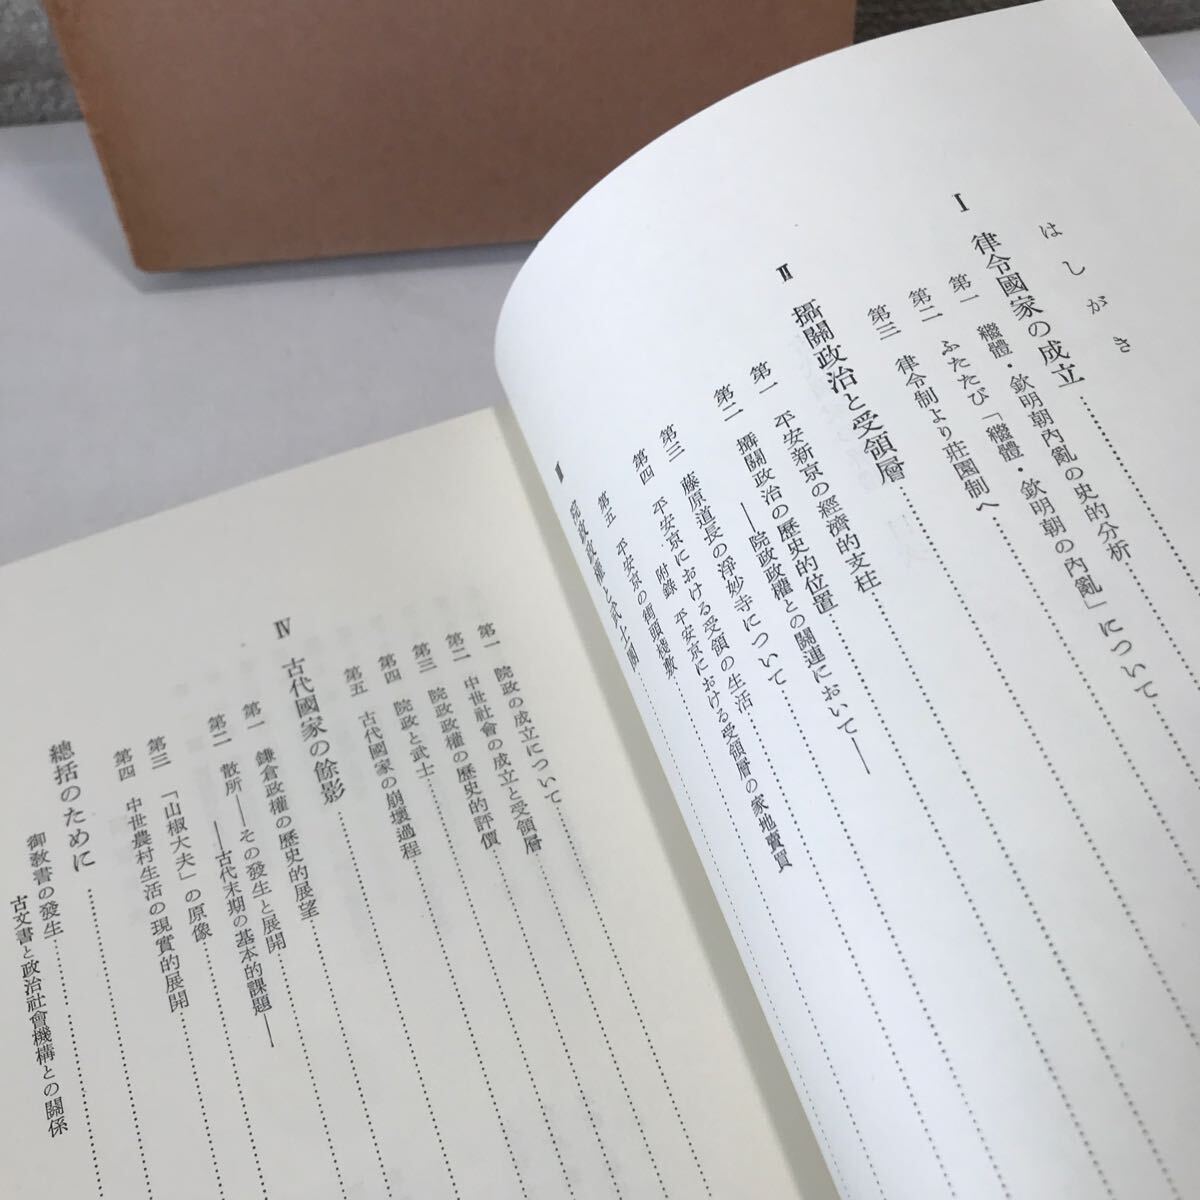 はしがき
Ⅰ 律令國家の成立
第一 繼體・欽明朝內亂の史的分析
第二 ふたたび「繼體・欽明朝の內亂」について
第三 律令制より莊園制へ
Ⅱ 攝關政治と受領層
第一 平安新京の經濟的支柱
第二 攝關政治の歷史的位置
——院政政權との關連において——
第三 藤原道長の淨妙寺について
第四 平安京における受領の生活
附錄 平安京における受領層の家地賣買
第五 平安京の街頭棧敷
Ⅲ 院政政權と武士團
第一 院政の成立について
第二 中世社會の成立と受領層
第三 院政政權の歷史的評價
第四 院政と武士
第五 古代國家の崩壞過程
Ⅳ 古代國家の餘影
第一 鎌倉政權の歷史的展望
第二 散所——その發生と展開
——古代末期の基本的課題——
第三 「山椒大夫」の原像
第四 中世農村生活の現實的展開
總括のために
御敎書の發生
古文書と政治社會機構との關係